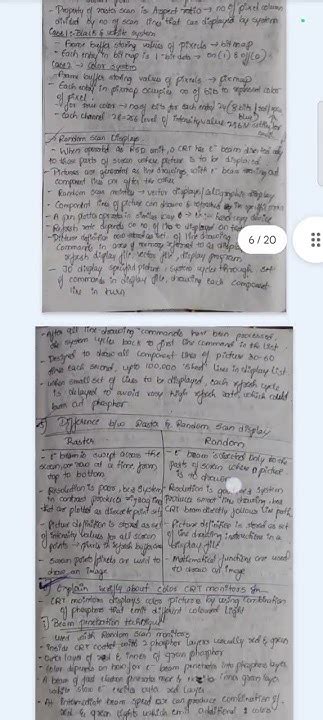 - Property of raster scan is Aspect ratio → no of pixel columns
divided by no of scan lines that can displayed by system
Case 1 - Black & white system
- Frame buffer storing values of pixels → bitmap
- Each entry in bitmap is 1-bit data → on (1) & off (0)
Case 2 → Color system
- Frame buffer storing values of pixels → pixmap
- Each entry in pixmap occupies no of bits to represent color
of pixel.
- for true color → no of bits for each entry 24 (8 bits
- each channel 2^8 = 256 level of intensity value
Random Scan Displays
- When operated as RSD unit, a CRT has e⁻ beam directed only
to those parts of screen where picture is to be displayed
- Pictures are generated as line drawings with e⁻ beam tracing out
component lines one after the other
- Random scan monitor → vector displays / calligraphic displays
- Component lines of picture can drawn &
- A pen plotter operates in similar way → hard copy device
- Refresh rate depends on no of lines to displayed on
- Picture definition now stored as set of line drawing
commands in area of memory referred to
refresh display file, vector file, display program
- To display specified picture, system cycles through set
of commands in display file, drawing each component
line in turn
6 / 20
- After all line drawing commands have been processed,
the system cycles back to first line command in the list
- Designed to draw all component lines of picture 30-60
times each second, upto 100,000 'short' lines in display list
- When small set of lines to be displayed, each refresh cycle
is delayed to avoid very high refresh rate, which could
burn out phosphor
5) Difference b/w Raster & Random scan display
Raster
- E⁻ beam is swept across the
screen, one row at a time from
top to bottom
- Resolution is poor, bcz system
in contrast produces
that are plotted as discrete point sets
- Picture definition is stored as set
of intensity values for all screen
points → in refresh buffer
- Screen points/pixels are used to
draw an image
Random
- E⁻ beam is directed only to the
parts of screen where a picture
is to drawn
- Resolution is good bcz system
produces smooth line drawing, bcz
CRT beam directly follows line path
- Picture definition is stored as set
of line drawing instructions in a
display file
- Mathematical functions are used
to draw an image
6) Explain briefly about color CRT monitors
- CRT monitors displays color pictures by using combination
of phosphors that emit different coloured light
1) Beam penetration technique
- Used with Random scan monitors
- Inside CRT coated with 2 phosphor layers usually red & green
- Outer layer of red & inner of green phosphor
- Color depends on how far e⁻ beam penetrates into phosphor layers
- A beam of fast electron penetrates inner green layer
while slow e⁻ excites outer red layer
- At intermediate beam speed we can produce combination of
red & green lights which emit additional 2 colors